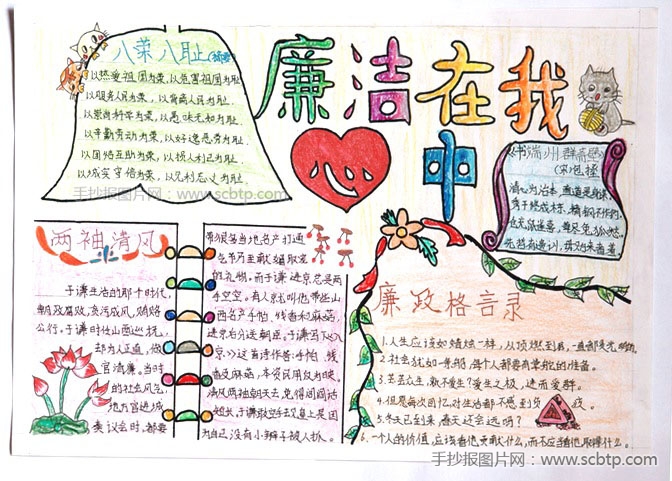 廉洁在我
心中
八荣八耻
以热爱祖国为荣,以危害祖国为耻
以服务人民为荣,以背离人民为耻
以崇尚科学为荣,以愚昧无知为耻
以辛勤劳动为荣,以好逸恶劳为耻
以团结互助为荣,以损人利己为耻
以诚实守信为荣,以见利忘义为耻
手抄报图片网:www.scbtp.com
《书端州郡斋壁》
(宋)包拯
清心为治本,直道是身谋。
秀干终成栋,精钢不作钩。
两袖清风
于谦生活的那个时代,
朝政腐败,贪污成风,贿赂
公行。于谦时任山西巡抚,
却为人正直,做
官清廉。当时
的社会风气,
地方官进城
奏议会时,都要
带很多当地名产打通
的礼物。而于谦进京总是两
手空空。有人就叫他带些山
西名产手帕、线香和麻菇,
京》这首诗作答:手帕,线
香及麻菇,本资民用反为殃。
清风两袖朝天去,免得闾阎话
为自己没有小辫子被人抓。
廉政格言录
1.人生应该如蜡烛一样,从顶燃到底,一直都是光明的。
2.社会犹如一条船,每个人都要有掌舵的准备。
3.芸芸众生,孰不爱生?爱生之极,进而爱群。
4.但愿每次回忆,对生活都不感到负疚。
5.冬天已到来,春天还会远吗?
6.一个人的价值,应该看他贡献什么,而不应当看他取得什么。
手抄报图片网:www.scbtp.com